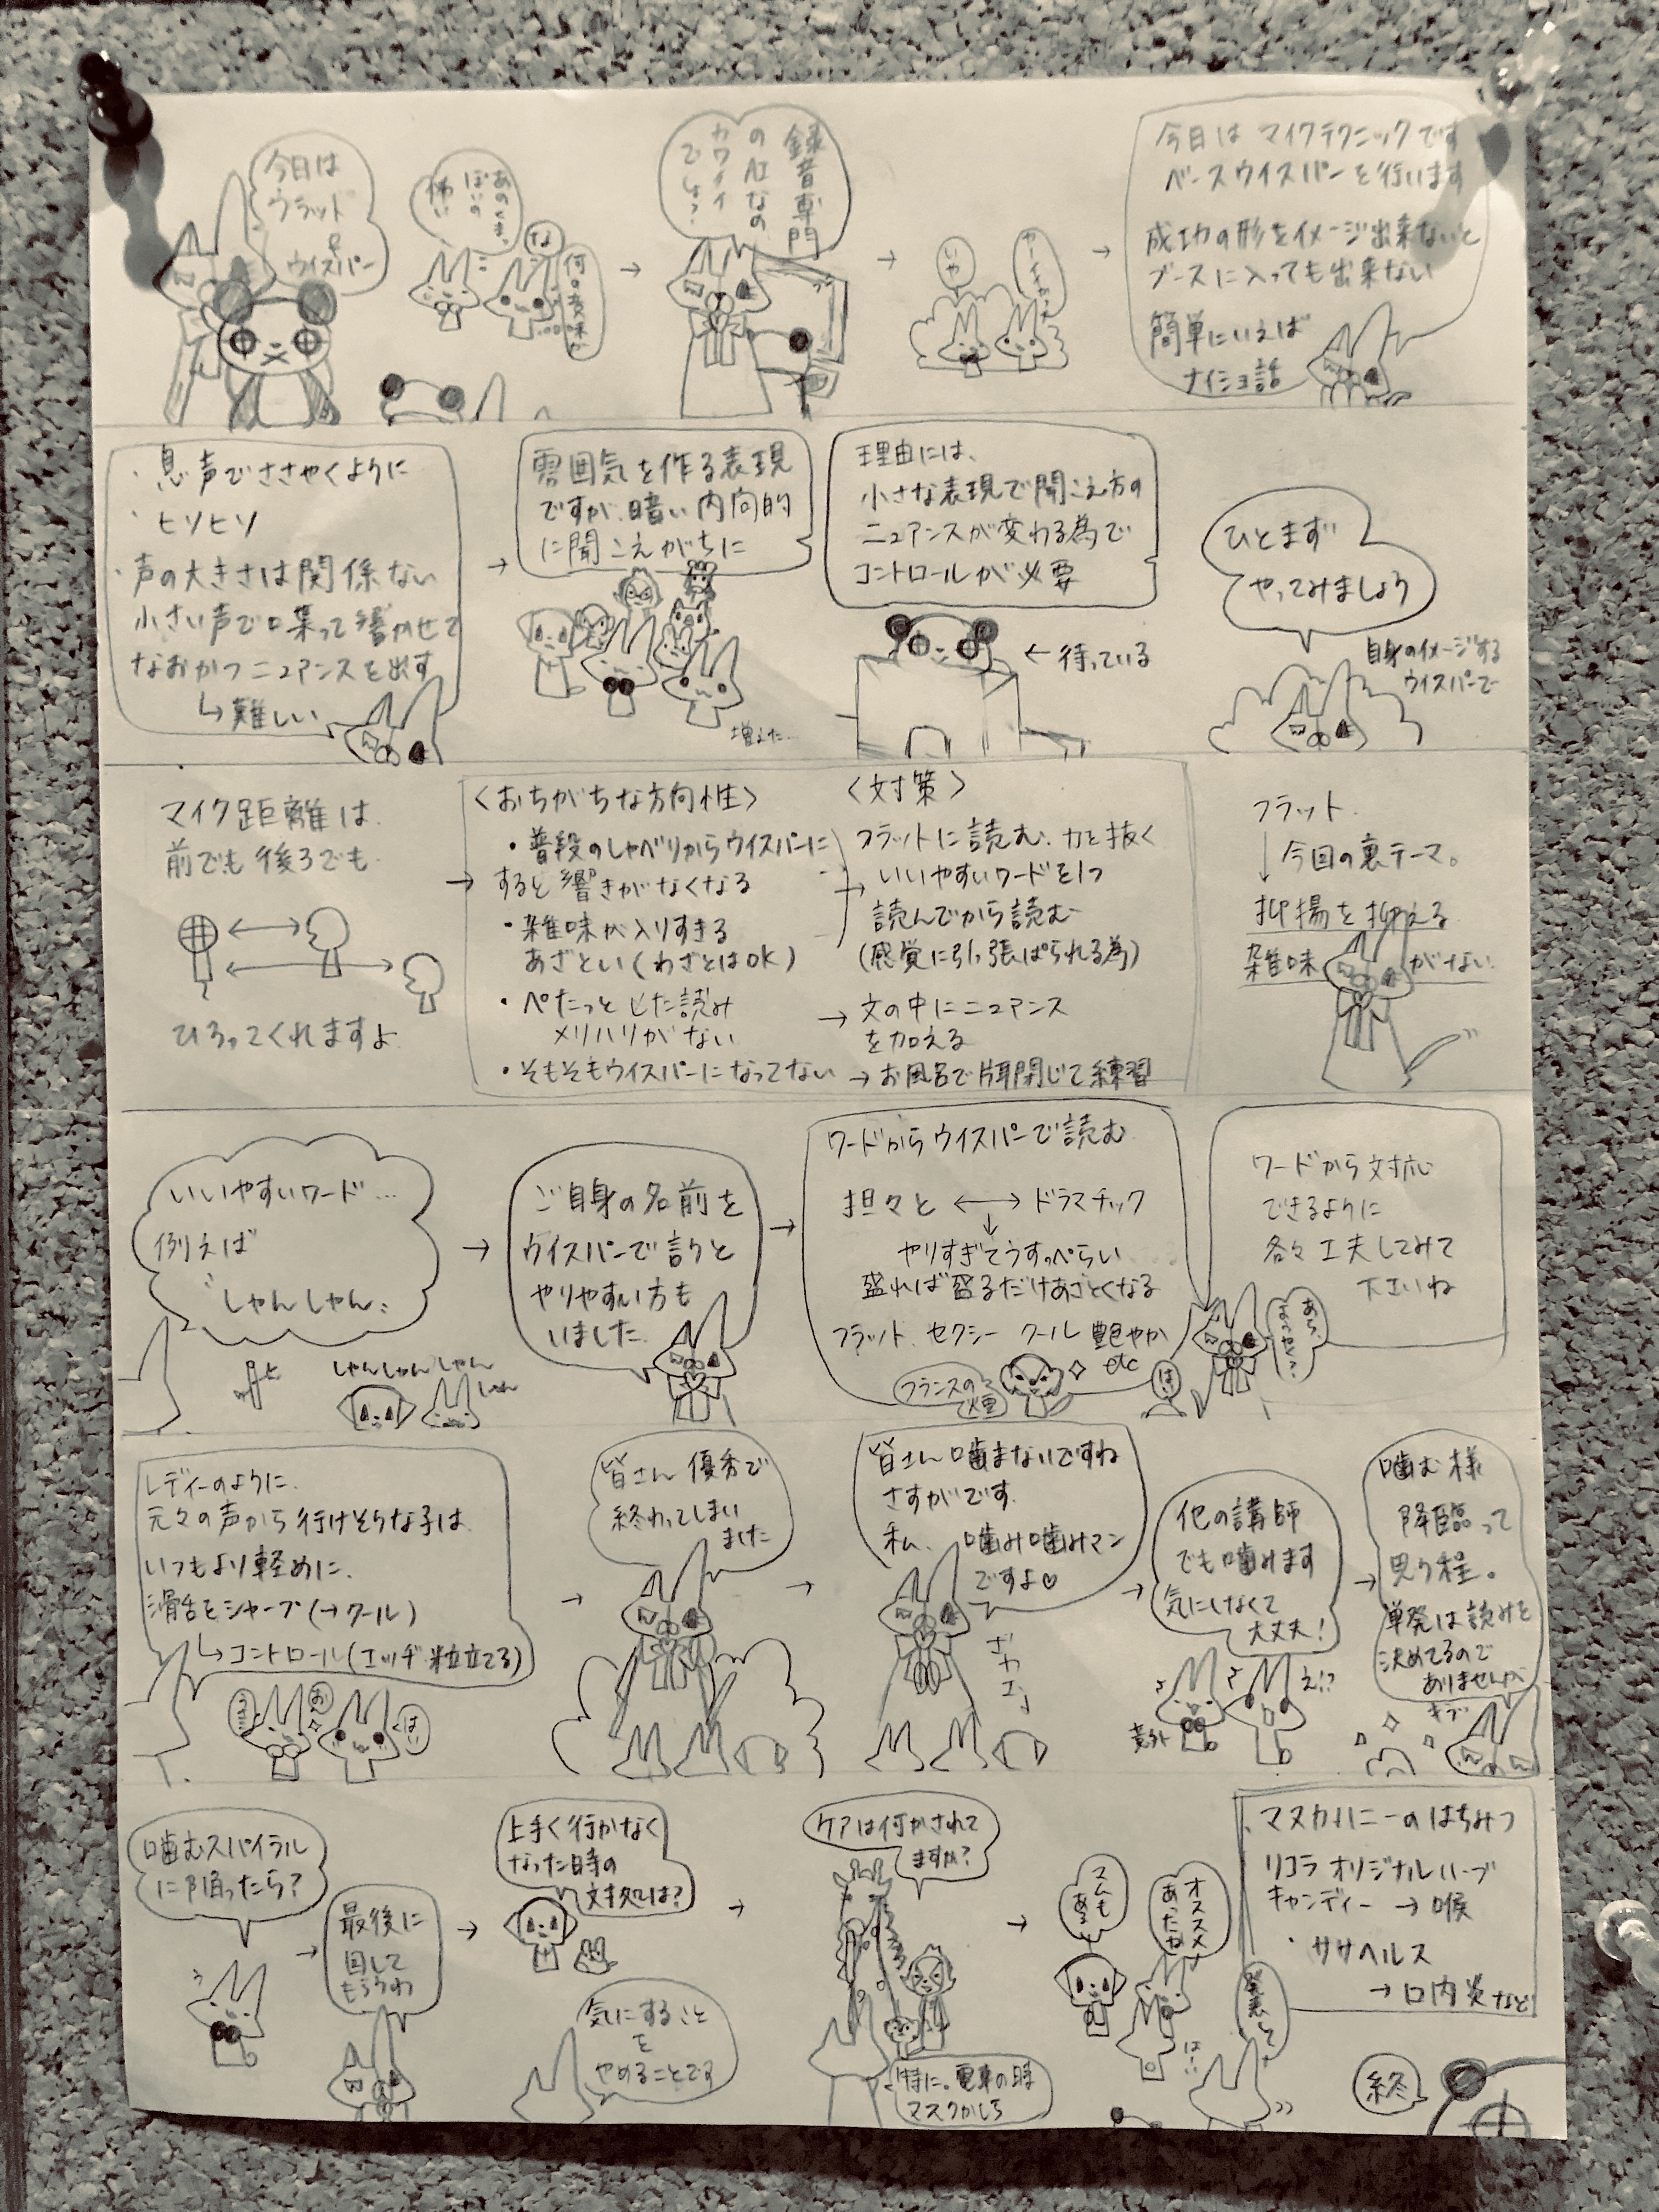 今日は
フラット
&
ウイスパー
あのくまっ
ぽいの
怖い
な
何の意味が
録音専門
の缶なの
カワイイ
でしょ?
いや
今日は マイクテクニックです
ベースウイスパーを行います
成功の形をイメージ出来ないと
ブースに入っても出来ない
簡単にいえば
ナイショ話
・息声でささやくように
・ヒソヒソ
・声の大きさは関係ない
小さい声で口集って響かせて
なおかつニュアンスを出す
↳難しい
雰囲気を作る表現
ですが、暗い内向的
に聞こえがちに
増えた…
理由には、
小さな表現で聞こえ方の
ニュアンスが変わる為で
コントロールが必要
← 待っている
ひとまず
やってみましょう
自身のイメージする
ウイスパーで
マイク距離は
前でも後ろでも
ひろってくれますよ
〈おちがちな方向性〉
・普段のしゃべりからウイスパーに
すると響きがなくなる
・雑味が入りすぎる
あざとい(わざとはOK)
・ぺたっとした読み
メリハリがない
・そもそもウイスパーになってない
〈対策〉
フラットに読む、力を抜く
→ いいやすいワードを1つ
読んでから読む
(感覚に引っ張ぱられる為)
→ 文の中にニュアンス
を加える
→ お風呂で片耳閉じて練習
フラット
↓ 今回の裏テーマ。
抑揚を抑える
雑味がない
いいやすいワード…
例えば
〝しゃんしゃん〟
しゃんしゃんしゃん
しゃん
ご自身の名前を
ウイスパーで言うと
やりやすい方も
いました
ワードからウイスパーで読む
担々と ⟷ ドラマチック
↓
やりすぎてうすっぺらい
盛れば盛るだけあざとくなる
フラット、セクシー クール 艶やか
etc
フランスの
煙
はい
ワードから対応
できるように
各々工夫してみて
下さいね
レディーのように
元々の声から行けそうな子は
いつもより軽めに、
滑舌をシャープ(→クール)
↳コントロール(エッヂ・粒立てる)
お
はい
皆さん優秀で
終わってしまい
ました
皆さん噛まないですね
さすがです
私、噛み噛みマン
ですよ♡
ざわ
他の講師
でも噛みます
気にしなくて
大丈夫!
意外
え!?
噛む様
降臨って
思う程。
単発は読みを
決めてるので
ありませんが
噛むスパイラル
に陥ったら?
最後に
回して
もらうわ
上手く行かなく
なった時の
対処は?
気にすること
を
やめることです
ケアは何かされて
ますか?
特に、電車の時
マスクかしら
オススメ
あったね
はい
発表して
マヌカハニーのはちみつ
リコラ オリジナルハーブ
キャンディー → 喉
・ササヘルス
→ 口内炎など
終